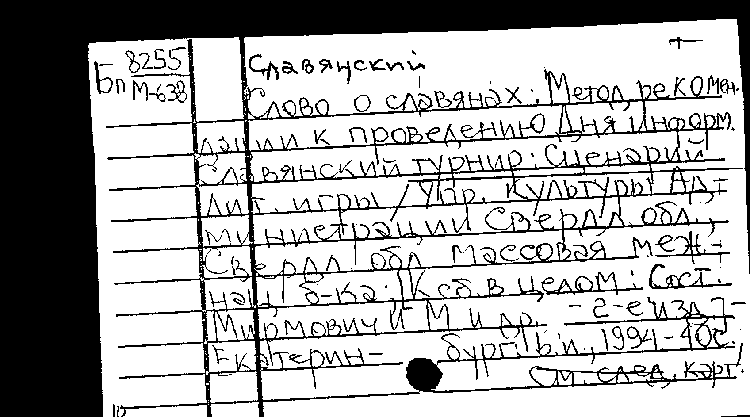 Бп 8255
М-638
Славянский
Слово о славянах: Метод, рекомен.
дации к проведению Дня информ.
Славянский турнир: Сценарий
лит. игры / Упр. культуры Ад-
министрации Свердл. обл.,
Свердл. обл массовая меж-
нац. б-ка; [К сб. в целом: Сост.
Мирмович И М и др. - 2-е изд.] -
Екатерин- бург: Б.и., 1994 - 40с.
См. след. карт!